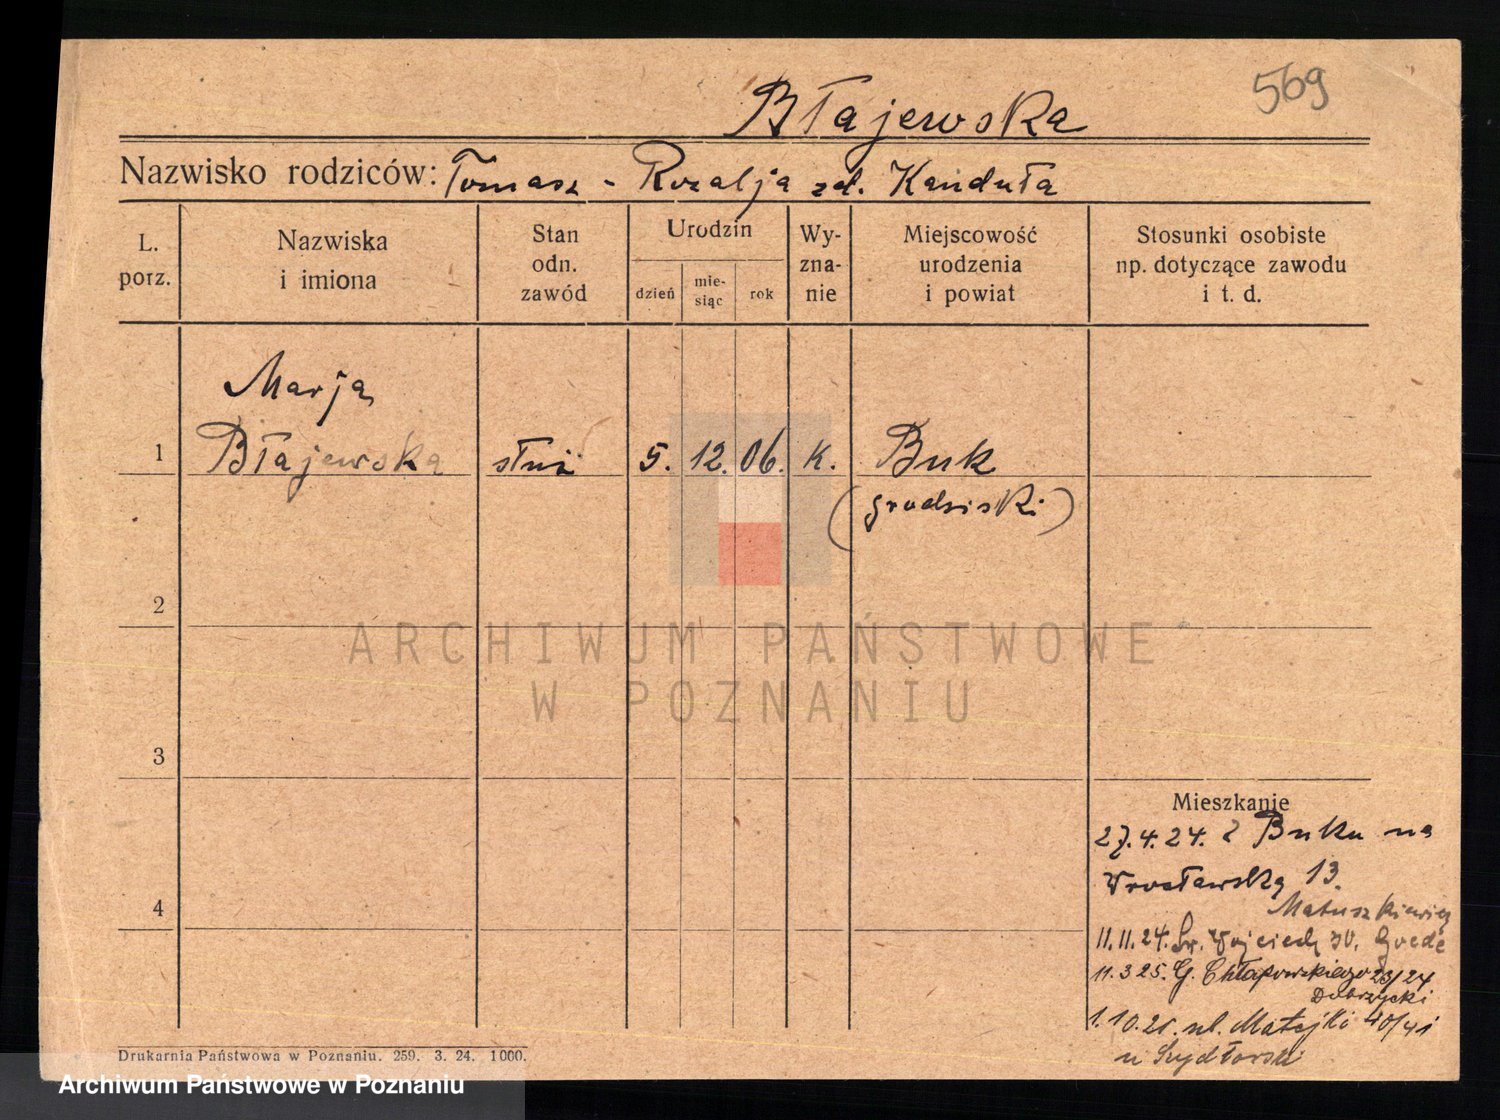 569
Błajewska
Nazwisko rodziców: Tomasz - Rozalja zd. Kanduła
L. porz.
Nazwiska i imiona
Stan odn. zawód
Urodzin
dzień
mie-siąc
rok
Wy-zna-nie
Miejscowość urodzenia i powiat
Stosunki osobiste np. dotyczące zawodu i t. d.
Marja
1 Błajewska służ 5. 12. 06. K. Buk
(grodziski)
2
ARCHIWUM PAŃSTWOWE
W POZNANIU
3
Mieszkanie
27.4.24. z Buku na
Wrocławską 13.
4
Matuszkiewicz
11.11.24. Św. Wojciech 30. Grede
11.3.25. G. Chłapowskiego 23/24
Dobrzycki
1.10.25. ul. Matejki 40/41
u Szydłorski
Drukarnia Państwowa w Poznaniu. 259. 3. 24. 1000.
Archiwum Państwowe w Poznaniu